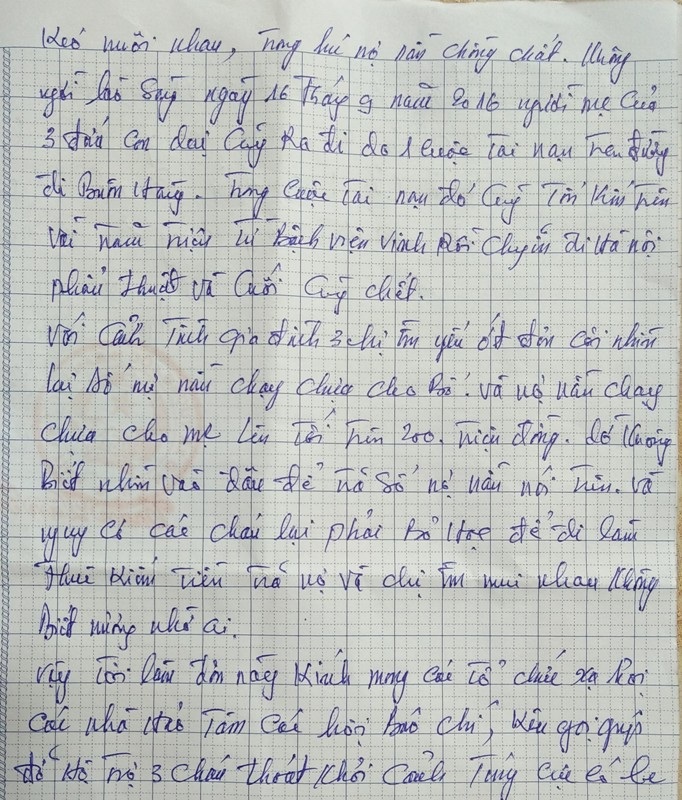 Kéo nuôi nhau, trong lúc nợ nần chồng chất. Không
nghĩ lao Sang ngày 16 tháng 9 năm 2016 người mẹ Của
3 đứa Con dại Cũng Ra đi do 1 cuộc Tai nạn trên đường
đi Bán Hàng. Trong cuộc Tai nạn đó Cũng Tốn Kém trên
Vài trăm triệu từ Bệnh viện vinh Rồi Chuyển đi Hà nội
phẩu thuật và Cuối Cùng chết.
Với Cảnh Tình gia đình 3 chị Em yếu ớt đơn Côi nhìn
lại Số nợ nần chạy chữa cho Bố. và nợ nần chạy
chữa cho mẹ lên tới trên 200. triệu đồng. đó Không
Biết nhìn vào đâu để trả Số nợ nần nói trên. Và
nguy cơ các cháu lại phải Bỏ Học để đi làm
thuê Kiếm Tiền trả nợ và chị Em nuôi nhau Không
Biết nương nhờ ai.
Vậy Tôi làm đơn này Kính mong các Tổ chức xã hội
các nhà Hảo Tâm các hội Báo chí, Kêu gọi giúp
đỡ Hỗ trợ 3 cháu thoát Khỏi Cảnh Túng